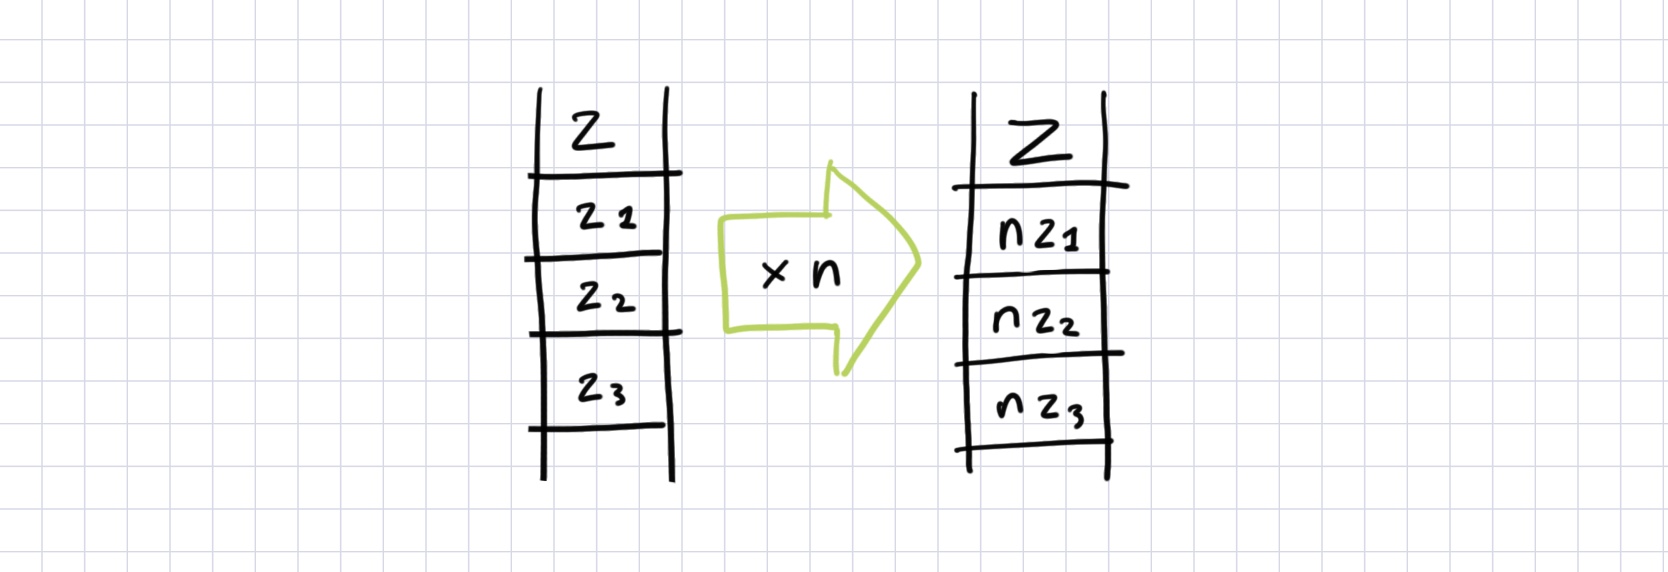 Z
z1
z2
z3
x n
Z
nz1
nz2
nz3